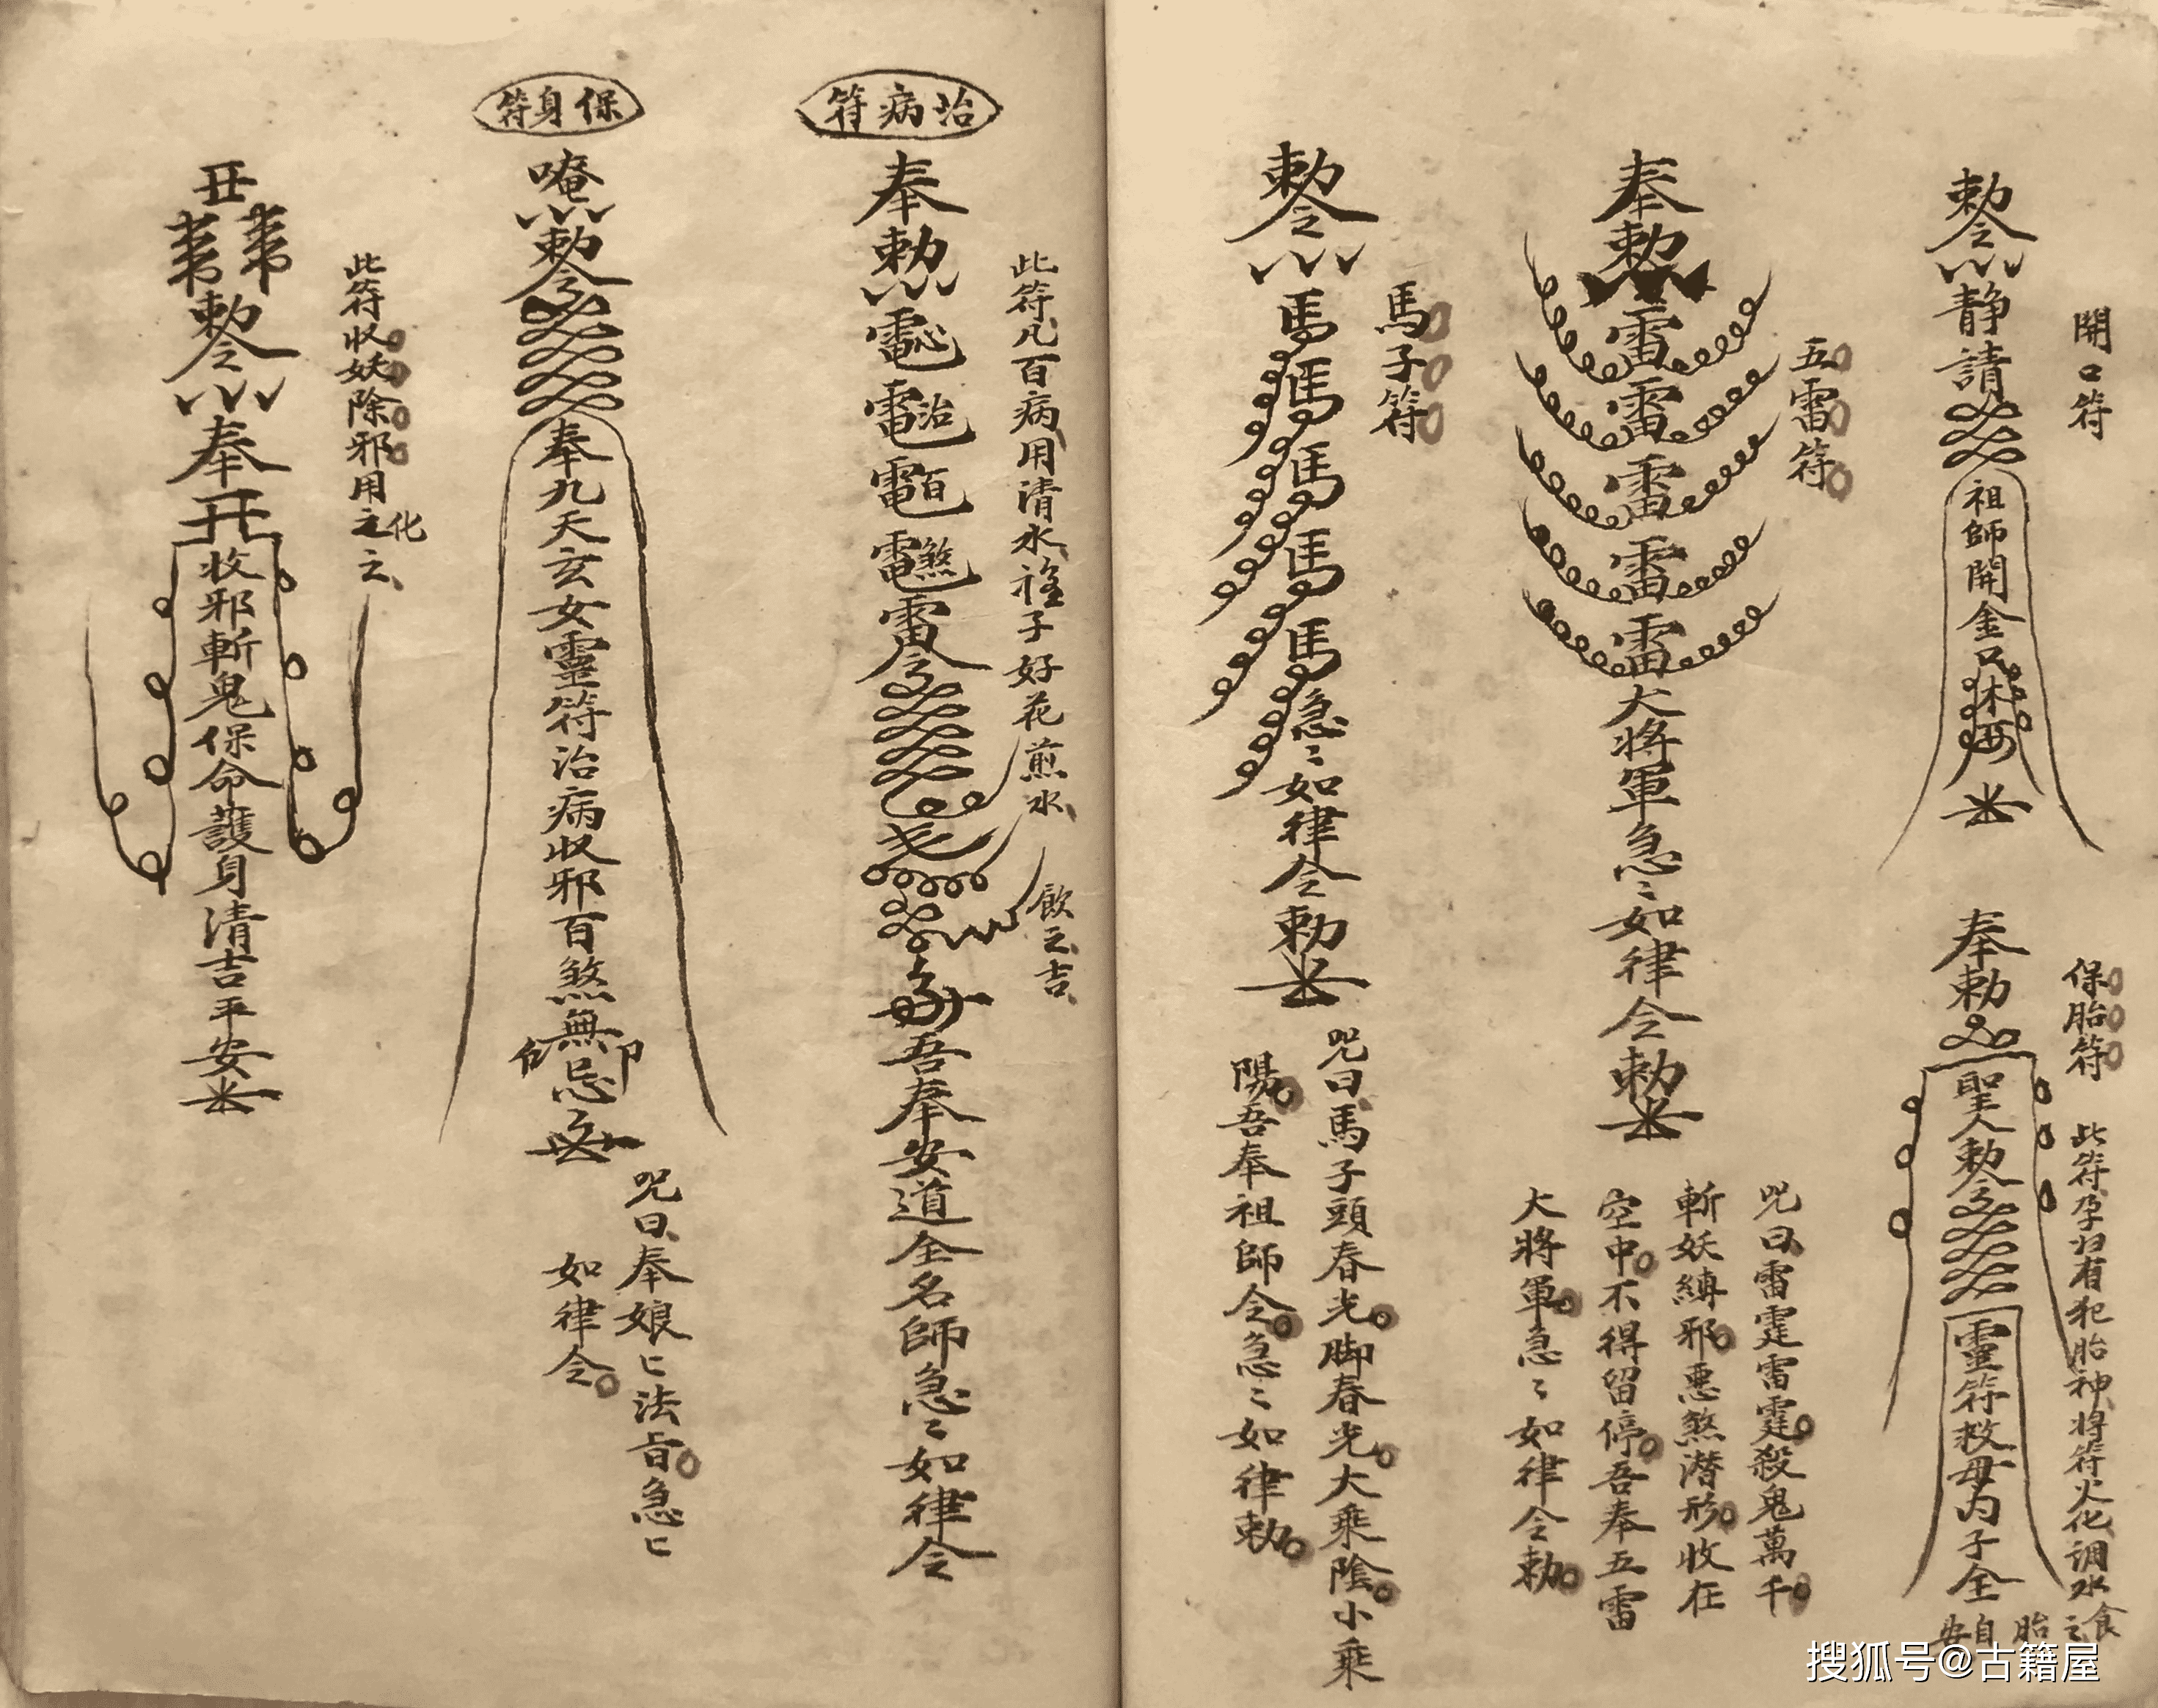 開口符
勅令
静請
祖師開金口
保胎符
此符孕妇有犯胎神将符火化调水食之胎自安
奉勅
聖人勅令
靈符救母内子全
五雷符
奉勅
雷雷雷雷雷大将軍急〻如律令勅
咒曰雷霆雷霆殺鬼萬千
斬妖縛邪悪煞潜形收在
空中不得留停吾奉五雷
大将軍急〻如律令勅
馬子符
勅令
馬馬馬馬馬急〻如律令勅
咒曰馬子頭春光脚春光大乘陰小乘
陽吾奉祖師令急〻如律勅
治病符
此符凡百病用清水 子好花煎水飲之吉
奉勅
治百煞雷令
吾奉安道全名師急〻如律令
保身符
唵
勅令
奉九天玄女靈符治病収邪百煞無忌
咒曰奉娘匕法旨急匕
如律令
此符収妖除邪用之化之
勅令
奉
收邪斬鬼保命護身清吉平安
搜狐号@古籍屋